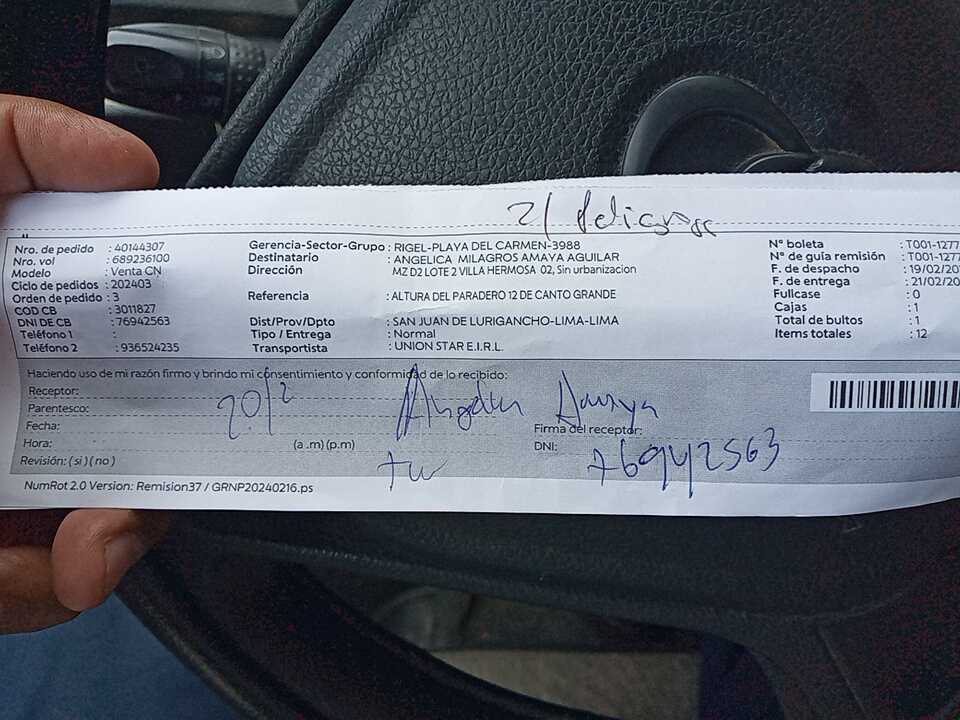 21
Nro. de pedido : 40144307
Nro. vol : 689236100
Modelo : Venta CN
Ciclo de pedidos : 202403
Orden de pedido : 3
COD CB : 3011827
DNI DE CB : 76942563
Teléfono 1 :
Teléfono 2 : 936524235
Gerencia-Sector-Grupo : RIGEL-PLAYA DEL CARMEN-3988
Destinatario : ANGELICA MILAGROS AMAYA AGUILAR
Dirección MZ D2 LOTE 2 VILLA HERMOSA 02, Sin urbanizacion
Referencia : ALTURA DEL PARADERO 12 DE CANTO GRANDE
Dist/Prov/Dpto : SAN JUAN DE LURIGANCHO-LIMA-LIMA
Tipo / Entrega : Normal
Transportista : UNION STAR E.I.R.L.
N° boleta : T001-1277
N° de guía remisión : T001-1277
F. de despacho : 19/02/20
F. de entrega : 21/02/20
Fullcase : 0
Cajas : 1
Total de bultos : 1
Items totales : 12
Haciendo uso de mi razón firmo y brindo mi consentimiento y conformidad de lo recibido:
Receptor:
Parentesco:
Fecha: 20/2
Hora: (a .m) (p.m)
Revisión: ( si ) ( no )
Amaya
Firma del receptor:
DNI: 76942563
NumRot 2.0 Version: Remision37 / GRNP20240216.ps